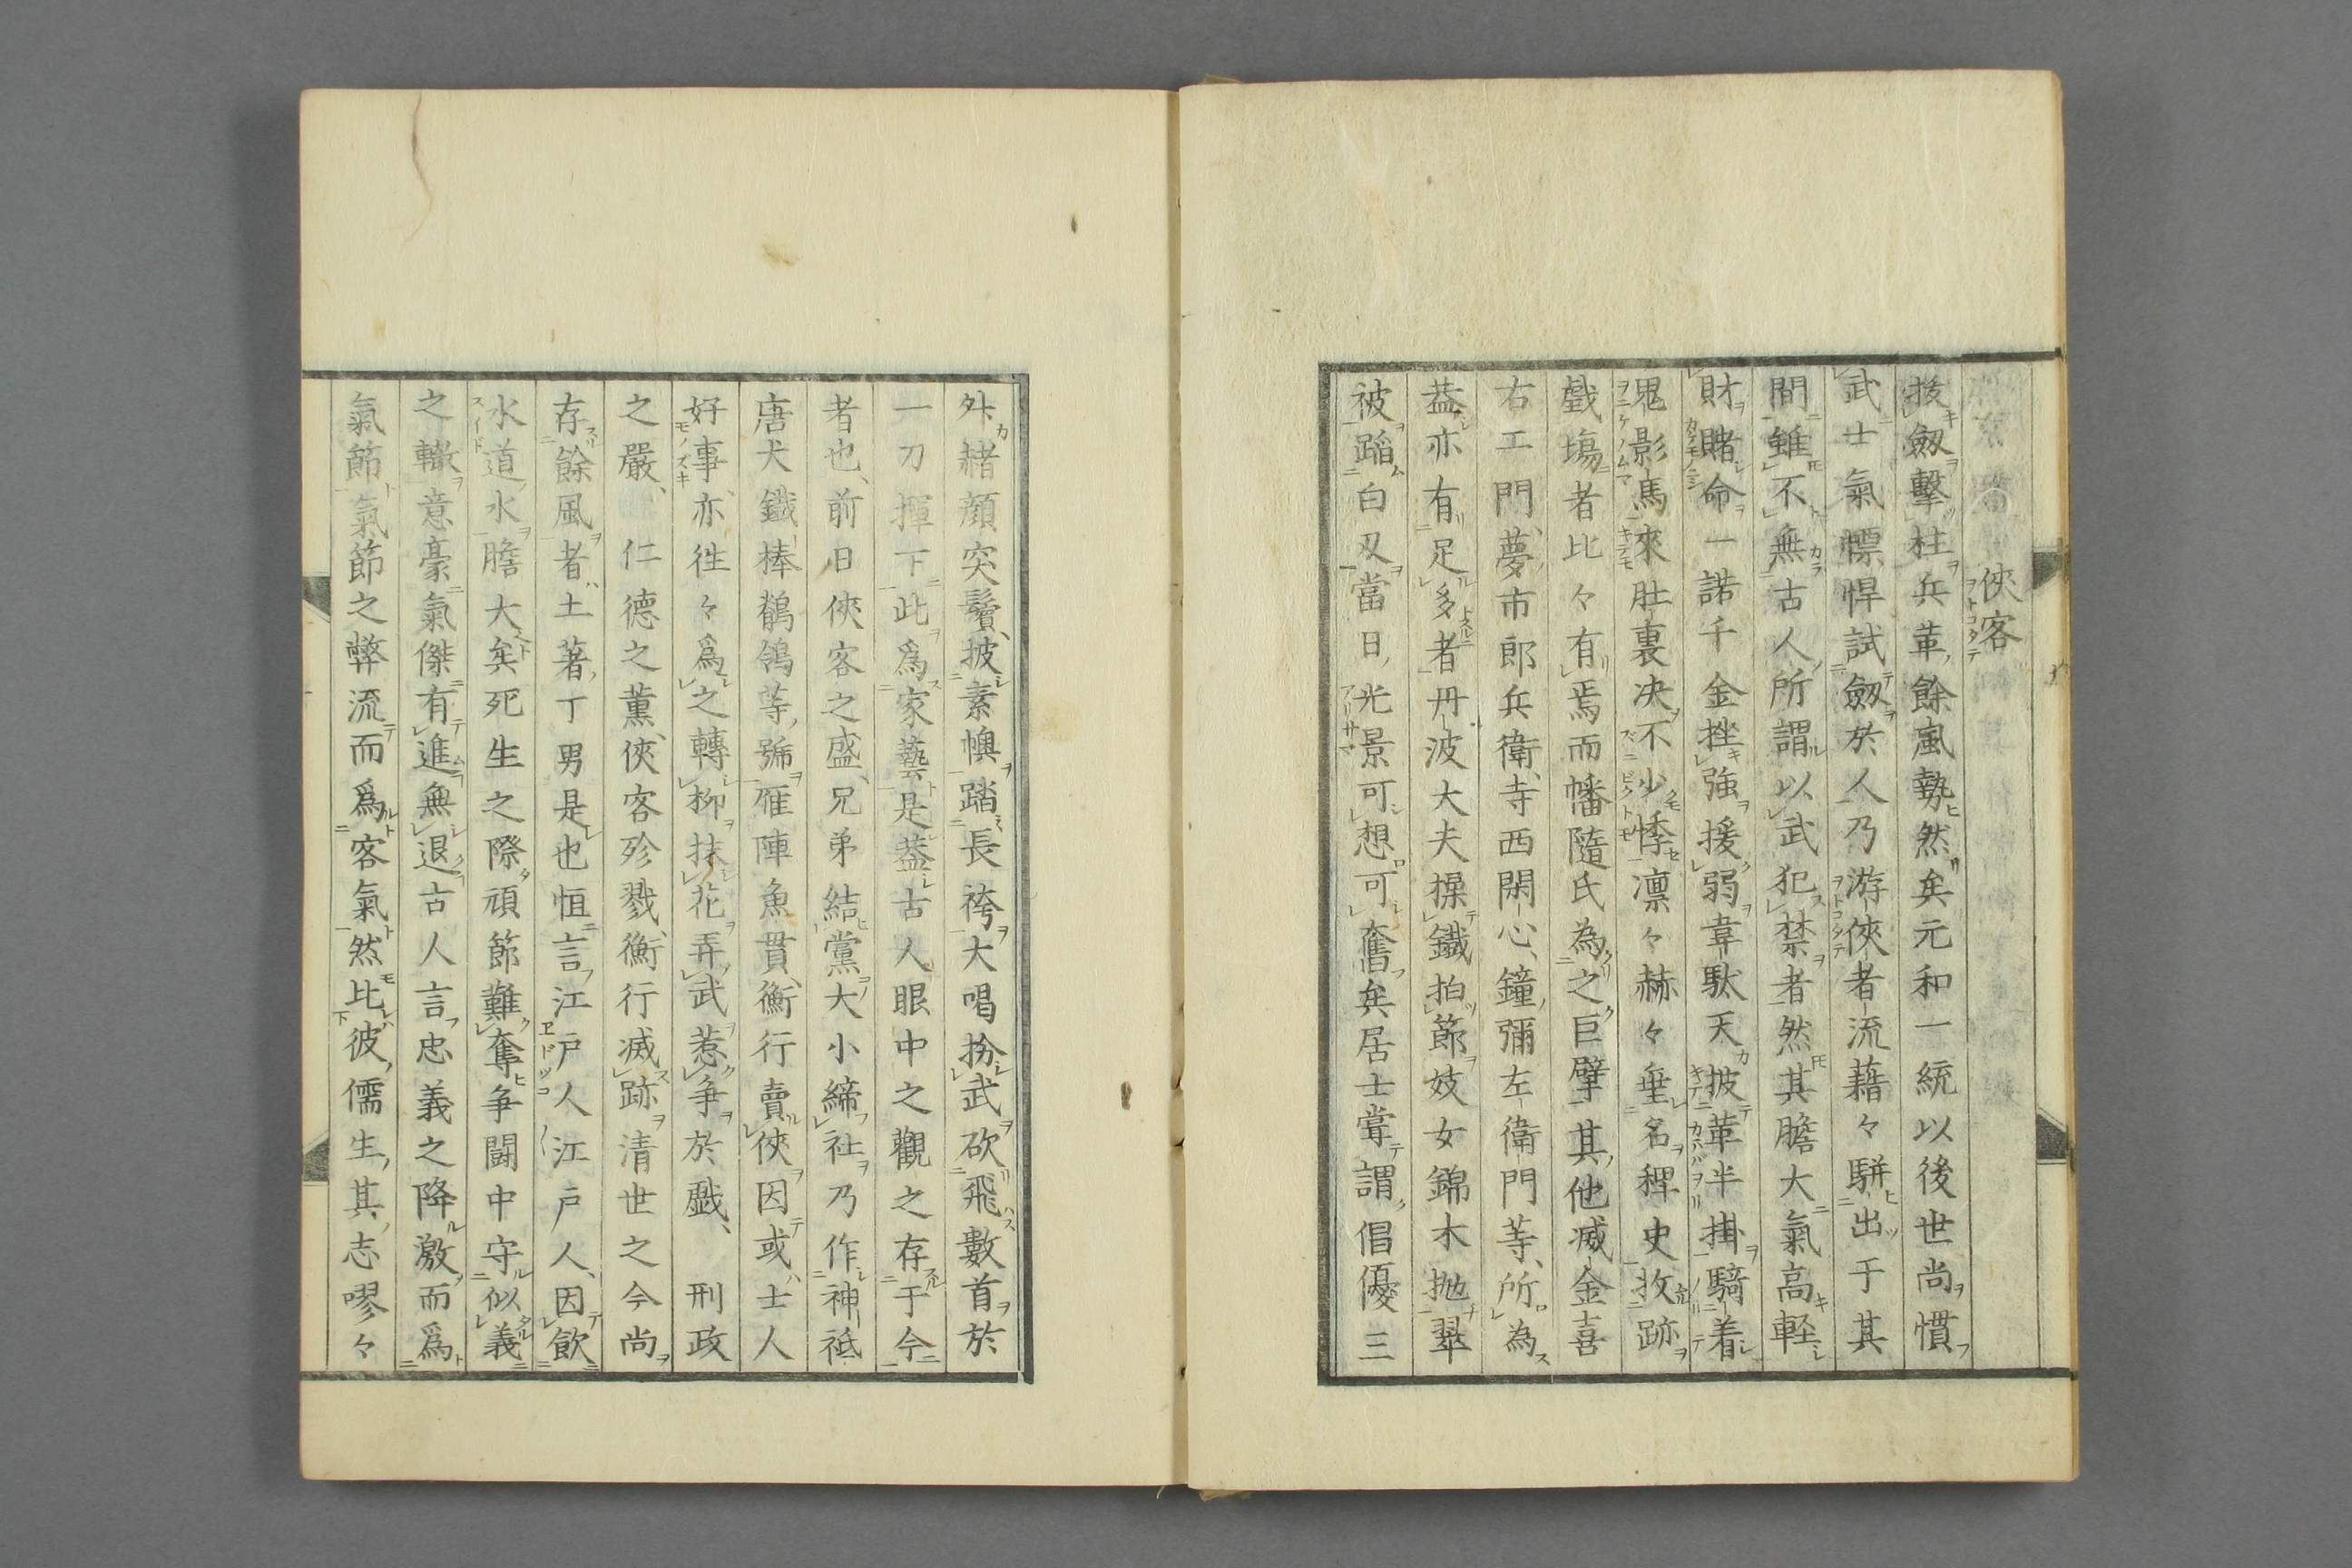 俠客
拔劔擊柱兵革餘嵐勢然矣元和一統以後世尚慣
武士氣慓悍試劔於人乃游俠者流藉々駢出于其
間雖不無古人所謂以武犯禁者然其膽大氣高軽
財賭命一諾千金挫強援弱韋駄天披革半掛騎着
鬼影馬來肚裏决不少悸凛々赫々垂名稗史攷跡
戲塲者比々有焉而幡隨氏為之巨擘其他㓕金喜
右工門夢市郎兵衛寺西閑心鐘彌左衛門等所為
葢亦有足多者丹波大夫操鐵拍節妓女錦木抛翠
被蹈白刄當日光景可想可奮矣居士甞謂倡優三
外赭顔突鬢披素懊踏長袴大唱扮武砍飛數首於
一刀揮下此爲家藝是葢古人眼中之觀之存于今
者也前日俠客之盛兄弟結黨大小締社乃作神祇
唐犬鐵棒鶺鴒等號雁陣魚貫衡行賣俠因或士人
好事亦徃々爲之轉柳抹花弄武惹爭於戲刑政
之嚴仁德之薫俠客殄戮衡行滅跡清世之今尚
存餘風者土著丁男是也恒言江戸人江戸人因飲
水道水膽大矣死生之際頑節難奪爭鬪中守似義
之轍意豪氣傑有進無退古人言忠義之降激而爲
氣節氣節之弊流而爲客氣然比彼儒生其志嘐々